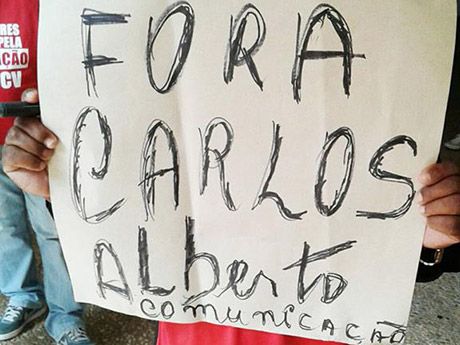 RES
PELA
AÇÃO
CV
FORA
CARLOS
Alberto
COMUNICAÇÃO